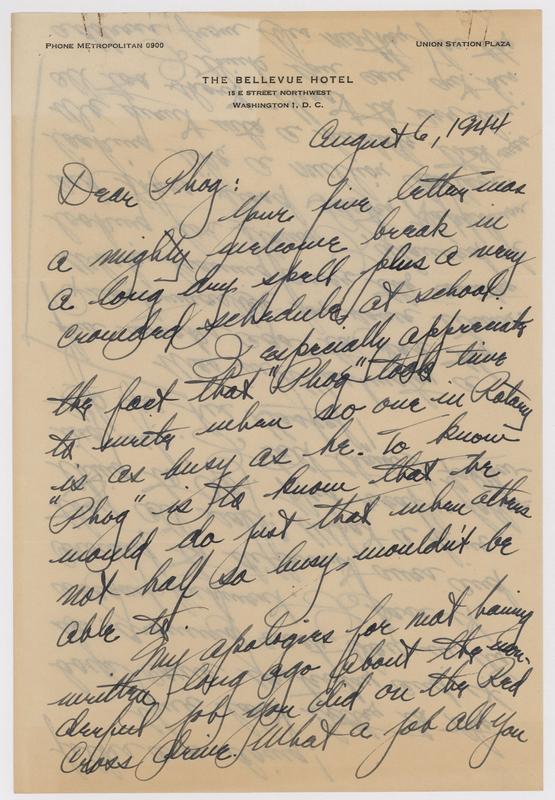 PHONE METROPOLITAN 0900
UNION STATION PLAZA
THE BELLEVUE HOTEL
15 E STREET NORTHWEST
WASHINGTON 1, D. C.
August 6, 1944
Dear Phog:
Your fine letter was
a mighty welcome break in
a long dry spell plus a very
crowded schedule at school.
I especially appreciate
the fact that "Phog" took time
to write when no one in Rotary
is as busy as he. To know
"Phog" is to know that he
would do just that when others
not half so busy, wouldn't be
able to.
My apologies for not having
written long ago about the won-
derful job you did on the Red
Cross drive. What a job all you